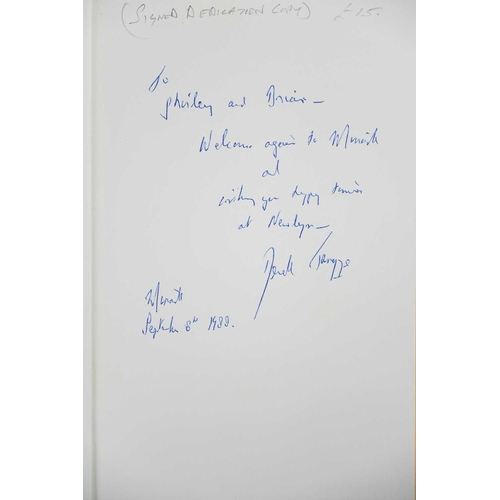 (SIGNED DEDICATION COPY) £15.
To
Shirley and Brian –
Welcome again to Minack
and
wishing you happy times
at Newlyn –
Derek Tangye
Minack
September 8th 1988.